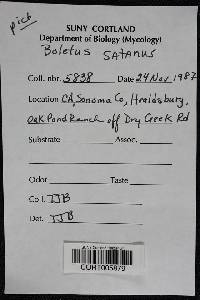 pict
SUNY CORTLAND
Department of Biology (Mycology)
Boletus satanus
Coll. nbr. 5838 Date 24 Nov 1987
Location CA, Sonoma Co, Hraldsburg,
Oak Pond Ranch off Dry Creek Rd
Substrate Assoc.
Odor Taste
Col. TJB
Det. TJB
CORT005879